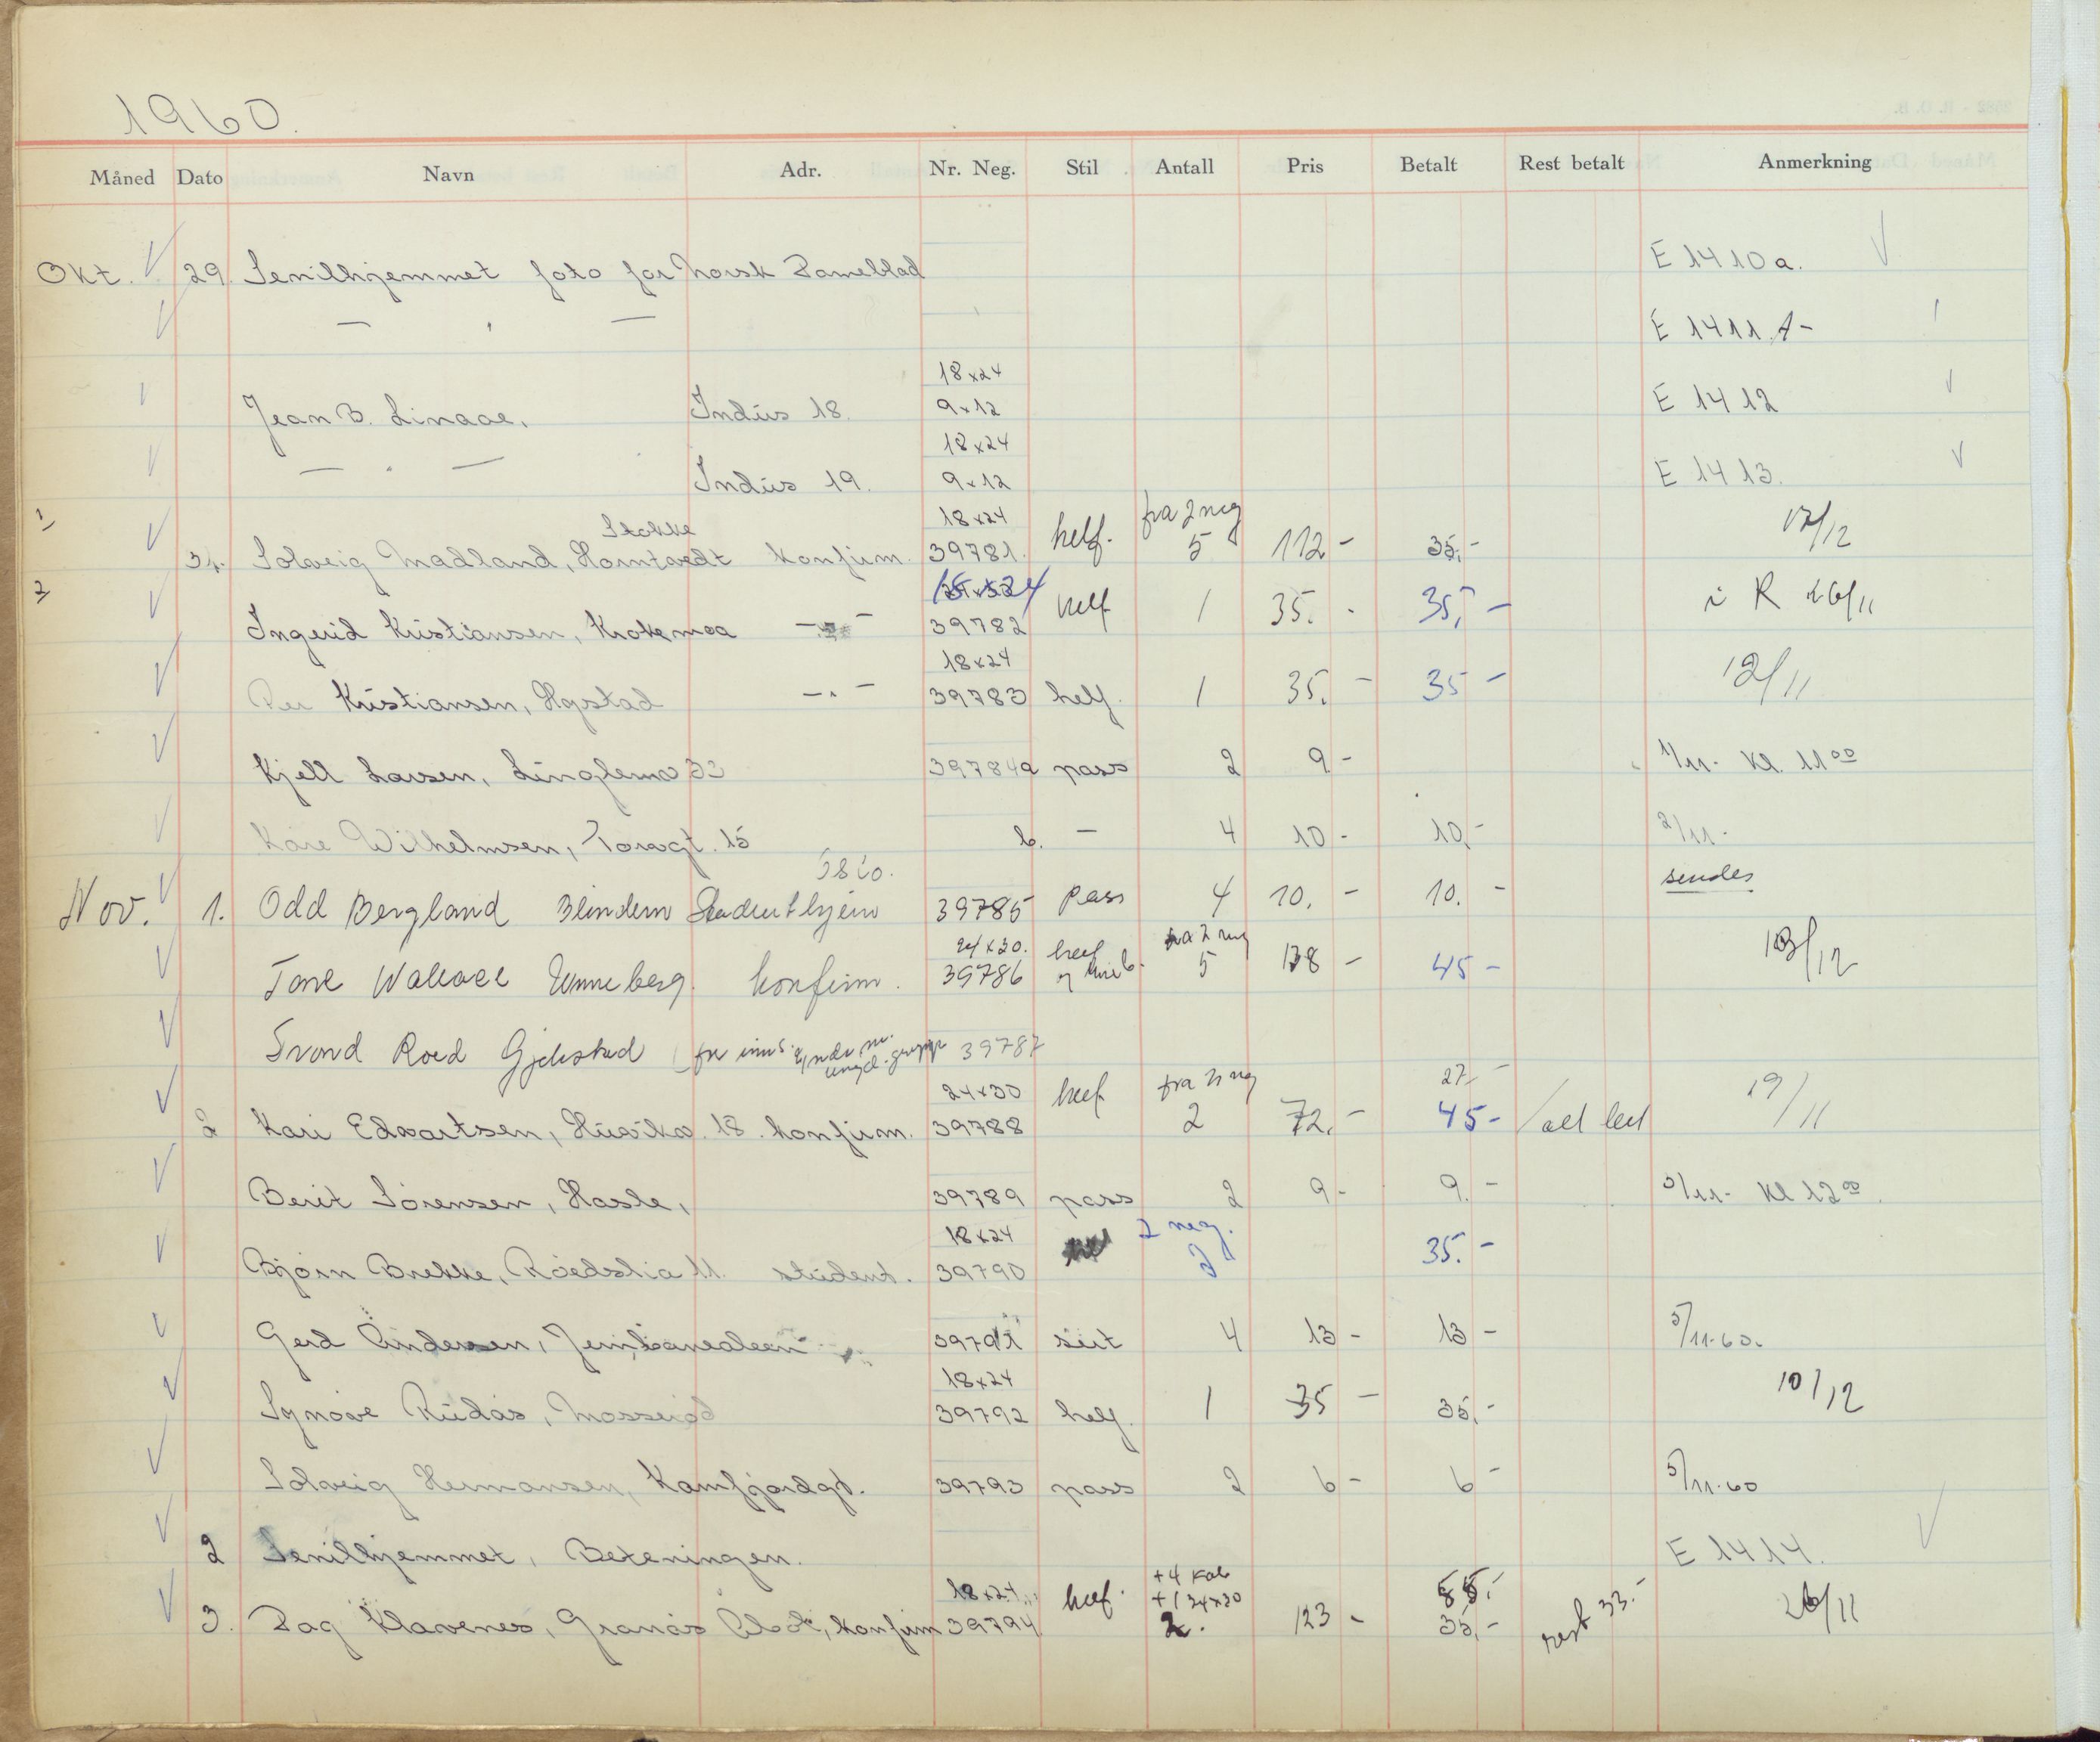 1960.
Måned Dato Navn Adr. Nr. Neg. Stil Antall Pris Betalt Rest betalt Anmerkning
Okt. 29. Senilhjemmet foto for Norsk Dameblad E 1410a.
— " — E 1411 A-
18x24
Jean B. Linaae, Indus 18. 9x12 E 1412
18x24
— " — Indus 19. 9x12 E 1413.
1) Stokke 18x24 fra 2 neg 17/12
31. Solveig Madland, Horntvedt konfirm. 39781. helf. 5 112 - 35,-
2) 18x24 i R 26/11
Ingerid Kristiansen, Krokemoa — " — 39782 helf 1 35. - 35,-
18x24 12/11
Per Kristiansen, Hystad — " — 39783 helf. 1 35. - 35 -
Kjell Larsen, Lingelemv 33 39784a pass 2 9 - 1/11. Kl. 11 00
Kåre Wilhelmsen, Torvgt. 15 b. — 4 10 - 10,- 2/11.
Oslo. sendes
Nov. 1. Odd Bergland Blindern Studenthjem 39785 pass 4 10. - 10. -
24x30. helf fra 2 neg 13/12
Tove Wallace Unneberg. konfirm. 39786 5 138 - 45 -
Trond Roed Gjekstad 39787
24x30 fra 2 neg 27,- 19/11
2 Kari Edvartsen, 18. konfirm. 39788 helf 2 72. - 45 - alt bet
Berit Sørensen, Hasle, 39789 pass 2 9 - 9. - 3/11. Kl 12 00.
18x24 2 neg.
Bjørn Brekke, Roedslia 11. student. 39790 2 35. -
Gerd Andersen, Jernbanealeen 39791 seit 4 13 - 13 - 5/11.60.
18x24 10/12
Synøve Rudås, Mosserød 39792 helf. 1 35 - 35,-
Solveig Hermansen, Kamfjordgt. 39793 pass 2 6 - 6 - 5/11.60
2 Senilhjemmet, Beteningen. E 1414.
18x24 + 4 kab
+ 1 24x30 rest 33.- 26/11
3. Dag Klavenes, Granås konfirm 39794 helf. 2. 123 - 35,-